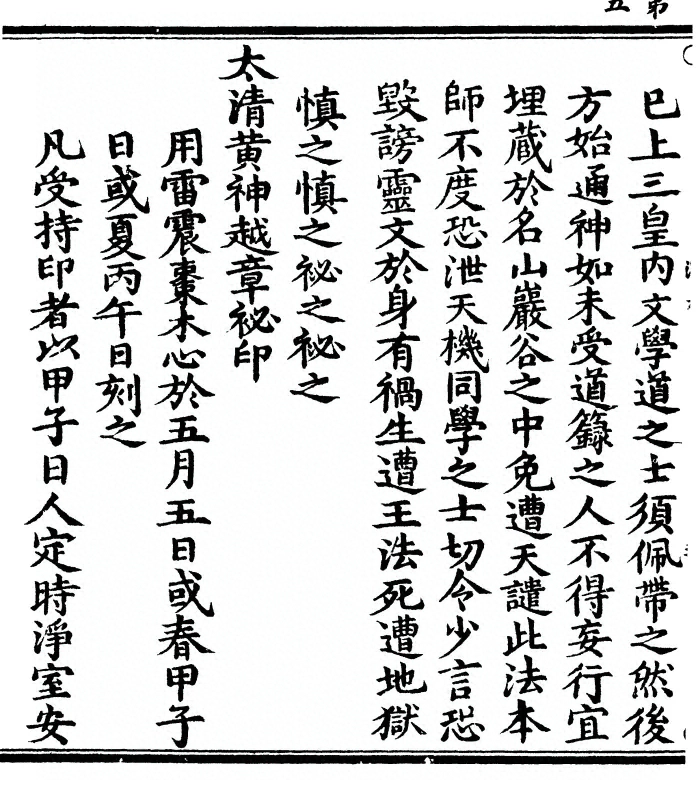 第
五
已上三皇内文學道之士須佩帶之然後
方始通神如未受道籙之人不得妄行宜
埋藏於名山巖谷之中免遭天譴此法本
師不度恐泄天機同學之士切令少言恐
毀謗靈文於身有禍生遭王法死遭地獄
慎之慎之祕之祕之
太清黄神越章祕印
用雷震棗木心於五月五日或春甲子
日或夏丙午日刻之
凡受持印者以甲子日人定時淨室安